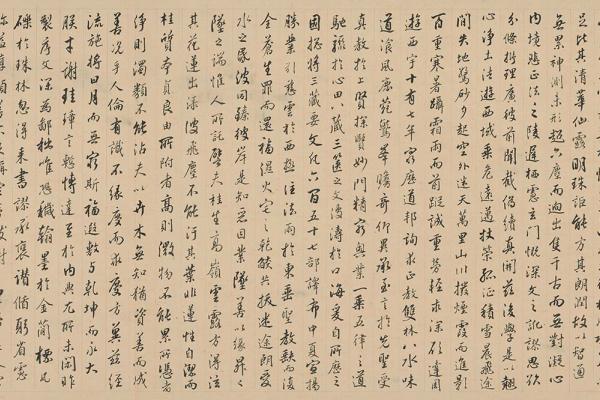 足比其清華仙露明珠詎能方其朗潤故以智通
無累神測未形超六塵而迥出隻千古而無對凝心
內境悲正法之陵遲栖慮玄門慨深文之訛謬思欲
分條析理廣彼前聞截偽續真開茲後學是以翹
心淨土法遊西域乘危遠邁杖策孤征積雪晨飛途
間失地驚砂夕起空外迷天萬里山川撥煙霞而進影
百重寒暑躡霜雨而前蹤誠重勞輕求深願達周
遊西宇十有七年窮歷道邦詢求正教雙林八水味
道飡風鹿菀鷲峯瞻奇仰異承至言於先聖受
真教於上賢探賾妙門精窮奧業一乘五律之道
馳驟於心田八藏三篋之文波濤於口海爰自所歷之
國揔將三藏要文凡六百五十七部譯布中夏宣揚
勝業引慈雲於西極注法雨於東垂聖教缺而復
全蒼生罪而還福濕火宅之乾燄共拔迷途朗愛
水之昏波同臻彼岸是知惡因業墜善以緣昇昇
墜之端惟人所託譬夫桂生高嶺雲露方得泫
其花蓮出淥波飛塵不能汙其葉非蓮性自潔而
桂質本貞良由所附者高則微物不能累所憑者
淨則濁類不能沾夫以卉木無知猶資善而成
善況乎人倫有識不緣慶而求慶方冀茲經
流施將日月而無窮斯福遐敷與乾坤而永大
朕才謝珪璋言慙博達至於內典尤所未閑昨
製序文深為鄙拙唯恐穢翰墨於金簡標瓦
礫於珠林忽得來書謬承褒讚循躬省慮